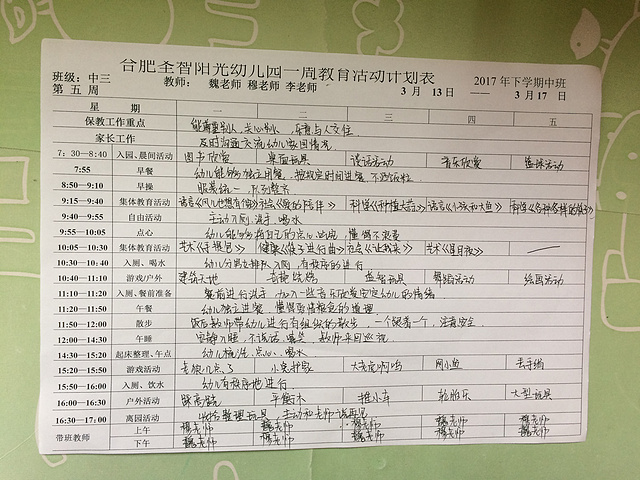 合肥全智阳光幼儿园一周教育活动计划表
班级：中三 教师： 魏老师 穆老师 李老师 2017 年下学期中班
第 五 周 3 月 13 日 —— 3 月 17 日
星 期 一 二 三 四 五
保教工作重点 能尊重别人，关心别人，乐意与人交往
家长工作 及时沟通交流幼儿家园情况
7：30—8:40 入园、晨间活动 图书欣赏 桌面玩具 谈话活动 音乐欣赏 益智活动
7:55 早餐 幼儿能够独立用餐，按规定时间进餐，不挑饭粒
8:50—9:10 早操 服装统一，队列整齐
9:15—9:40 集体教育活动 语言《风儿也想有个伴》 社会 科学 语言《小孩和大鱼》 科学
9:40—9:55 自由活动 主动入厕、洗手、喝水
9:55—10:05 点心 幼儿能够将自己的点心吃完，懂得不浪费
10:05—10:30 集体教育活动 艺术《手提包》 健康《猴子进行曲》 社会《让我来》 艺术 ——
10:30—10:40 入厕、喝水 幼儿分男女排队入厕，有秩序的进行
10:40—11:10 游戏/户外 建筑天地 益智玩具 舞蹈活动 绘画活动
11:10—11:20 入厕、餐前准备 餐前进行洗手，加入一些音乐欣赏安定幼儿的情绪
11:20—11:50 午餐 幼儿独立进餐，懂得爱惜粮食的道理
11:50—12:00 散步 饭后教师带幼儿进行有组织的散步，一个跟着一个，注意安全
12:00—14:30 午睡 安静入睡，不说话、嬉笑 教师来回巡视
14:30—15:20 起床整理、午点 幼儿梳洗、点心、喝水
15:20—15:50 游戏活动 老狼几点了 小兔拔萝 网小鱼 丢手绢
15:50—16:00 入厕、饮水 幼儿有秩序地进行
16:00—16:30 户外活动 平衡木 推小车 大型玩具
16:30—17:00 离园活动 收拾整理玩具，主动和老师说再见
带班教师 上午 穆老师 魏老师 穆老师 魏老师 魏老师
下午 魏老师 穆老师 魏老师 穆老师 魏老师